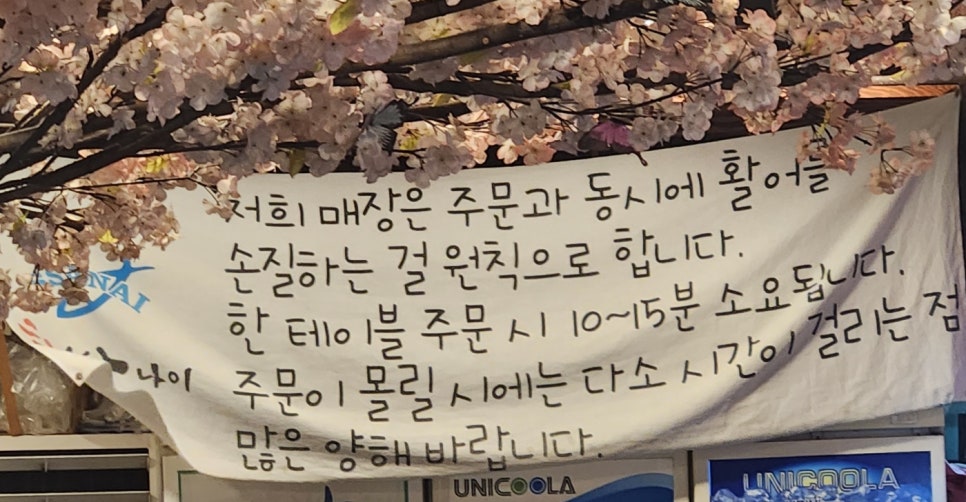 저희 매장은 주문과 동시에 활어를
손질하는 걸 원칙으로 합니다.
한 테이블 주문 시 10~15분 소요됩니다.
주문이 몰릴 시에는 다소 시간이 걸리는 점
많은 양해 바랍니다.
나이
UNICOOLA
UNICOOLA